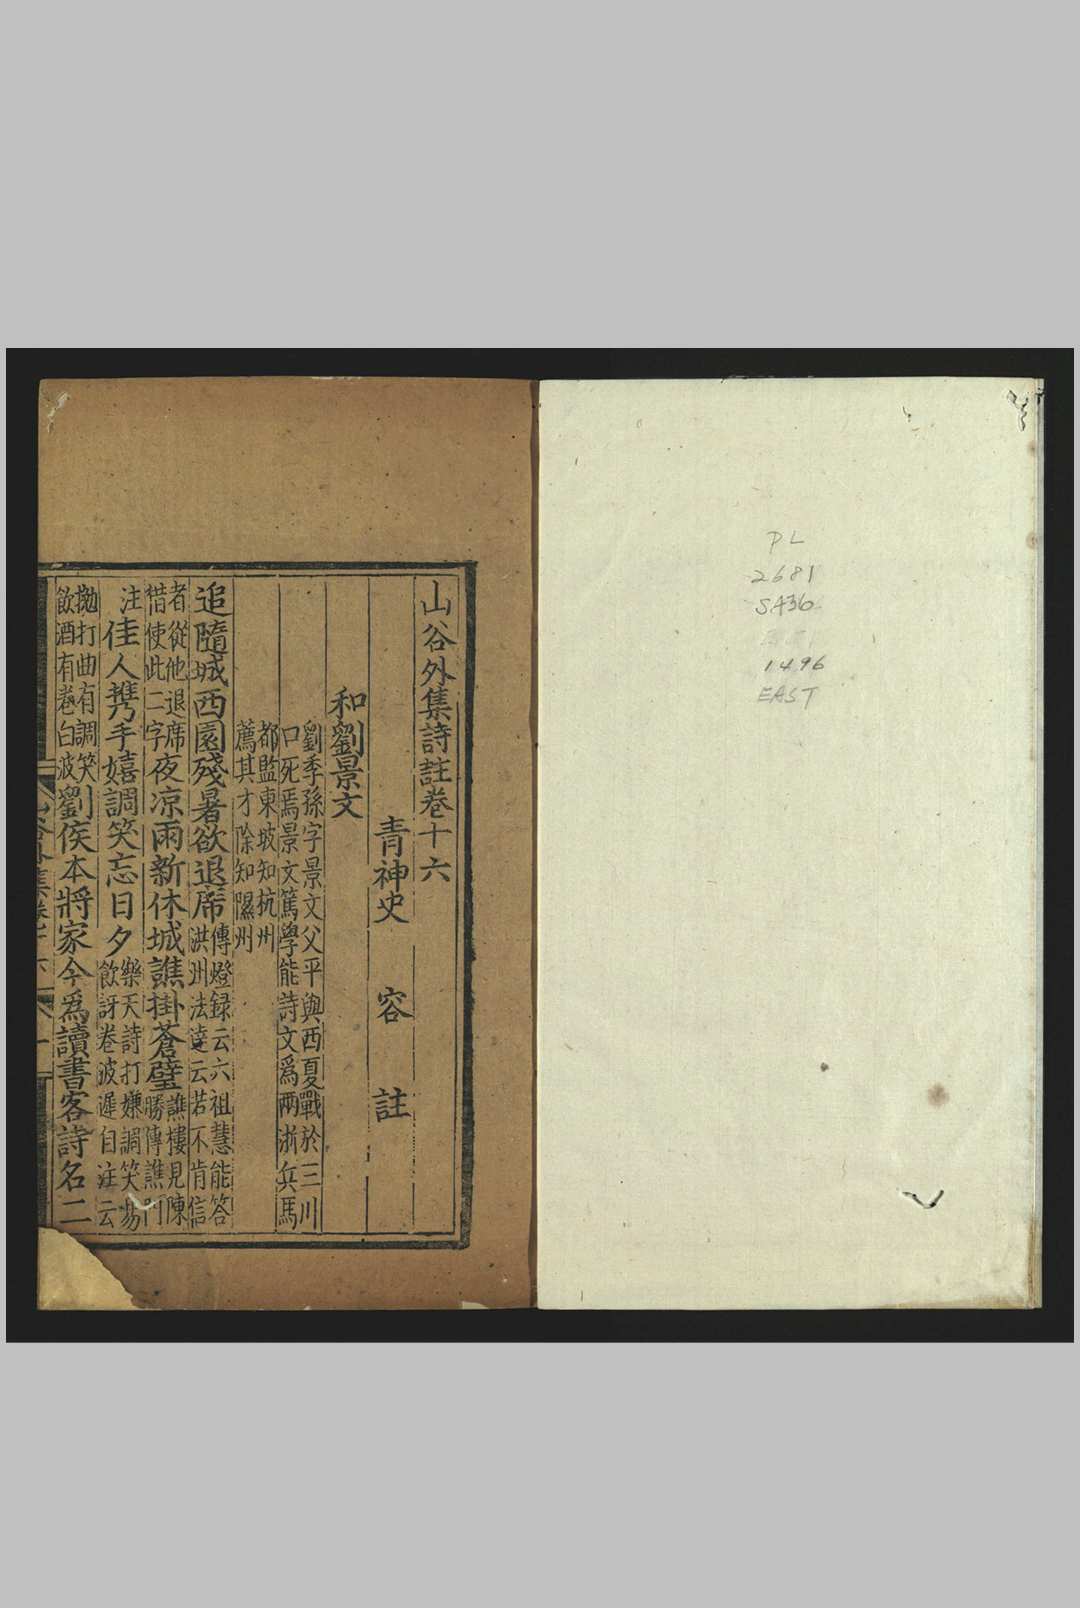 PL
2681
.SA36
1496
EAST
山谷外集詩註卷十六
青神史 容 註
和劉景文
劉季孫字景文父平與西夏戰於三川
口死焉景文篤學能詩文爲兩浙兵馬
都監東坡知杭州
薦其才除知隰州
追隨城西園殘暑欲退席
傳燈録云六祖慧能答
洪州法達云若不肯信
者從他退席
借使此二字
夜凉雨新休城譙掛蒼璧
譙樓見陳
勝傳譙門
注
佳人携手嬉調笑忘日夕
樂天詩打嫌調笑易
飲訝卷波遲自注云
抛打曲有調笑
飲酒有卷白波
劉侯本將家今爲讀書客詩名二